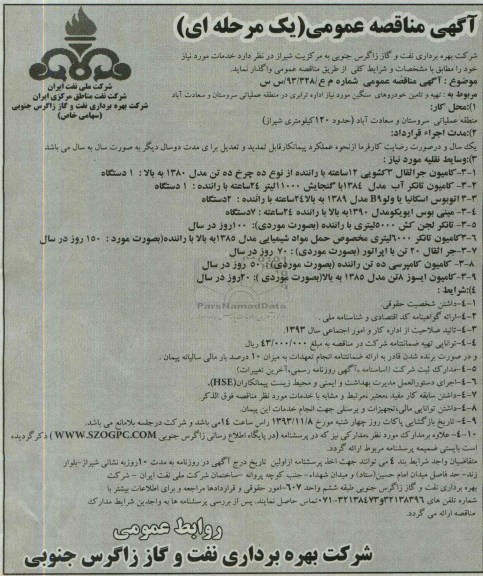 آگهی مناقصه عمومی(یک مرحله ای)
شرکت ملی نفت ایران
شرکت نفت مناطق مرکزی ایران
شرکت بهره برداری نفت و گاز زاگرس جنوبی
(سهامی خاص)
شرکت بهره برداری نفت و گاز زاگرس جنوبی به مرکزیت شیراز در نظر دارد خدمات مورد نیاز
خود را مطابق با مشخصات و شرایط کلی از طریق مناقصه عمومی واگذار نماید.
موضوع : آگهی مناقصه عمومی شماره م ع/۹۳/۳۲۸/س س
مربوط به : تهیه و تامین خودروهای سنگین مورد نیاز اداره ترابری در منطقه عملیاتی سروستان و سعادت آباد
۱):محل کار:
منطقه عملیاتی سروستان و سعادت آباد (حدود ۱۲۰کیلومتری شیراز)
۲):مدت اجراء قرارداد:
یک سال و درصورت رضایت کارفرما ازنحوه عملکرد پیمانکارقابل تمدید و تعدیل برای مدت دوسال دیگر به صورت سال به سال می باشد.
۳):وسایط نقلیه مورد نیاز :
۱-۳-کامیون جراثقال ۳کشویی ۱۲ساعته با راننده از نوع ده چرخ ده تن مدل ۱۳۸۰ به بالا : ۱ دستگاه
۲-۳- کامیون تانکر آب مدل ۱۳۸۴با گنجایش ۱۱۰۰۰لیتر ۲۴ساعته با راننده : ۱ دستگاه
۳-۳ اتوبوس اسکانیا یا ولوB9 مدل ۱۳۸۹ به بالا۲۴ساعته با راننده : ۲دستگاه
۴-۳- مینی بوس ایویکومدل ۱۳۹۰به بالا با راننده ۲۴ساعته : ۷دستگاه
۵-۳- تانکر لجن کش ۵۰۰۰لیتری با راننده (بصورت موردی): ۱۰۰روز در سال
۶-۳کامیون تانکر ۶۰۰۰لیتری مخصوص حمل مواد شیمیایی مدل ۱۳۸۵به بالا با راننده(بصورت مورد : ۱۵۰ روز در سال
۷-۳-جر اثقال ۲۰ تن با اپراتور (بصورت موردی) : ۷۰ روز در سال
۸-۳- کامیون کامپرسی ده تن راننده (بصورت موردی): ۵۰ روز در سال
۹-۳- کامیون ایسوز ۸تن مدل ۱۳۸۵ به بالا(بصورت موردی ): ۲۰روز در سال
ParsNamadData
۴):شرایط :
۱-۴-داشتن شخصیت حقوقی.
۲-۴-ارائه گواهینامه کد اقتصادی و شناسنامه ملی .
۳-۴-تائید صلاحیت از اداره کار و امور اجتماعی سال ۱۳۹۳.
۴-۴-توانایی تهیه ضمانتنامه شرکت در مناقصه به مبلغ ۴۳/۰۰۰/۰۰۰ ریال
و در صورت برنده شدن قادر به ارائه ضمانتنامه انجام تعهدات به میزان ۱۰ درصد بار مالی سالیانه پیمان .
۵-۴-مدارک ثبت شرکت (اساسنامه ،آگهی روزنامه رسمی،آخرین تغییرات)
۶-۴-اجرای دستورالعمل مدیرت بهداشت و ایمنی و محیط زیست پیمانکاران(HSE).
۷-۴-داشتن سابقه کار مفید ،معتبر ،مرتبط و مشابه با خدمات مورد نظر مناقصه فوق الذکر.
۸-۴-داشتن توانایی مالی،تجهیزات و پرسنلی جهت انجام خدمات این پیمان.
۹-۴-تاریخ بازگشایی پاکات روز چهار شنبه مورخ ۱۳۹۳/۱۱/۸ راس ساعت ۱۴می باشد و شرکت درجلسه بلامانع می باشد.
۱۰-۴-علاوه برمدارک مورد نظر مدارکی نیز که در پرسشنامه (در پایگاه اطلاع رسانی زاگرس جنوبی WWW.SZOGPC.COM ) ذکرگردیده
است بایستی ضمیمه پرسشنامه مربوط ارائه گردد.
متقاضیان واجد شرایط بند ۴ می توانند جهت اخذ پرسشنامه ازاولین تاریخ درج آگهی در روزنامه به مدت ۱۰روزبه نشانی شیراز-بلوار
زند-حد فاصل میدان امام حسین(ستاد) و میدان شهداء- جنب کوچه پروانه -ساختمان شرکت ملی نفت ایران - شرکت
بهره برداری نفت و گاز زاگرس جنوبی طبقه ششم واحد ۶۰۷-امور حقوقی و قراردادها مراجعه و برای اطلاعات بیشتر با
شماره تلفن های ۳۲۱۳۸۳۹۶و۳۲۱۳۸۴۷۳-۰۷۱تماس حاصل نمایند. پس از بررسی پرسشنامه ها به واجدین شرایط مدارک
مناقصه ارائه می گردد.
روابط عمومی
شرکت بهره برداری نفت و گاز زاگرس جنوبی